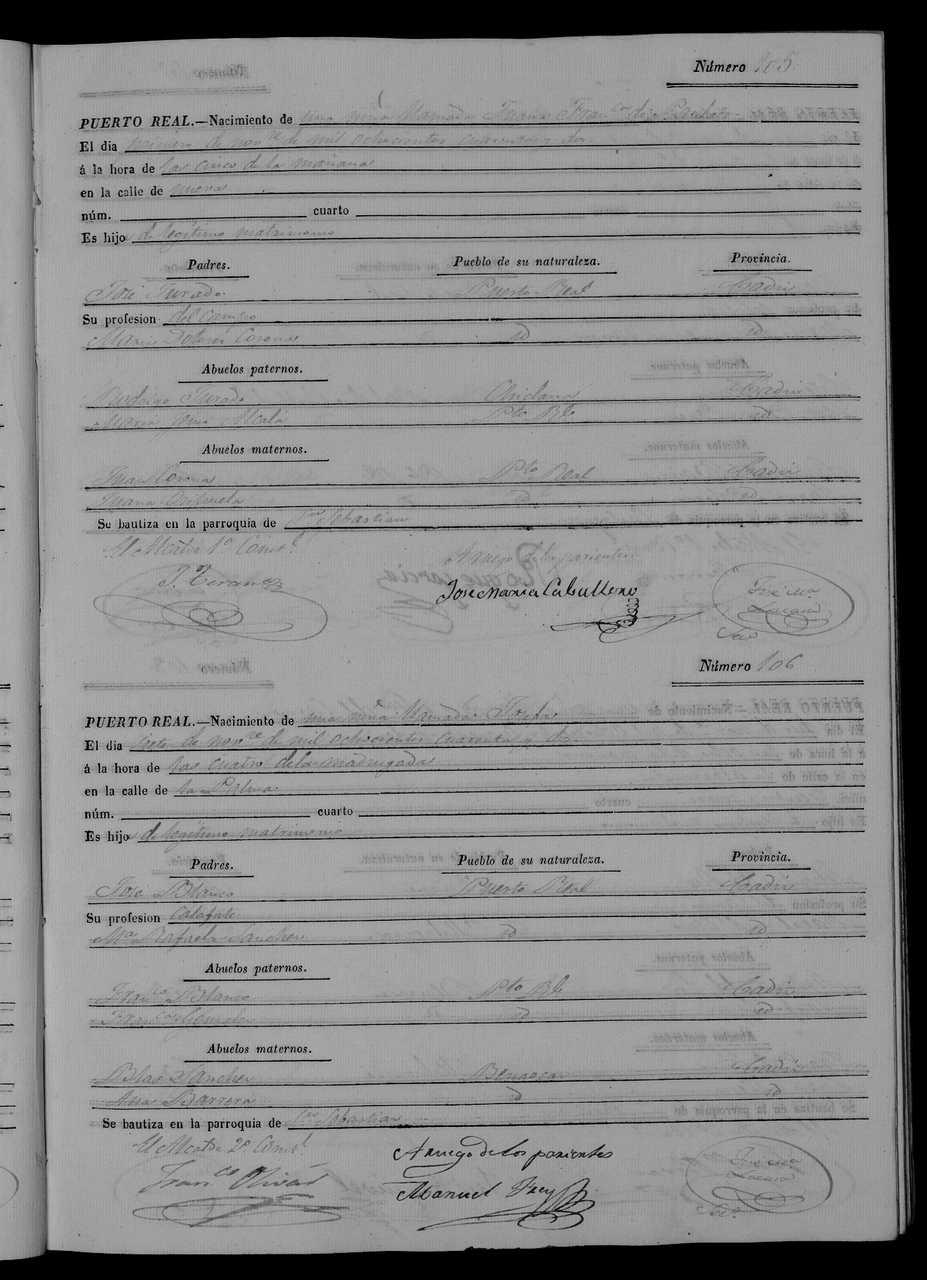 Número 105
PUERTO REAL.—Nacimiento de una niña llamada Fran.ca de
El dia primero de nov.e de mil ochocientos cuarenta y dos
á la hora de las cinco de la mañana
en la calle de nueva
núm. cuarto
Es hijo de legitimo matrimonio
Padres. Pueblo de su naturaleza. Provincia.
José Jurado Puerto Real Cadiz
Su profesion del campo
Maria Dolores Corona id id
Abuelos paternos.
Rodrigo Jurado Chiclana Cadiz
Maria Josefa Alcalá Pto Rl id
Abuelos maternos.
Juan Corona Pto Real Cadiz
Juana id id
Se bautiza en la parroquia de San Sebastian
El Alcalde 1.o Cons.l
A ruego de los parientes
P. Teran
Jose Maria Caballero
José
Srio
Número 106
PUERTO REAL.—Nacimiento de una niña llamada
El dia siete de nov.e de mil ochocientos cuarenta y dos
á la hora de las cuatro de la madrugada
en la calle de la Palma
núm. cuarto
Es hijo de legitimo matrimonio
Padres. Pueblo de su naturaleza. Provincia.
José Blanco Puerto Real Cadiz
Su profesion Calafate
M.a Rafaela Sanchez id id
Abuelos paternos.
Fran.co Blanco Pto Rl Cadiz
Fran.ca Gonzalez id id
Abuelos maternos.
Blas Sanchez Cadiz
Ana Barrera id id
Se bautiza en la parroquia de San Sebastian
El Alcalde 2.o Cons.l
A ruego de los parientes
Fran.co Olivar
Manuel Frey
José
Srio